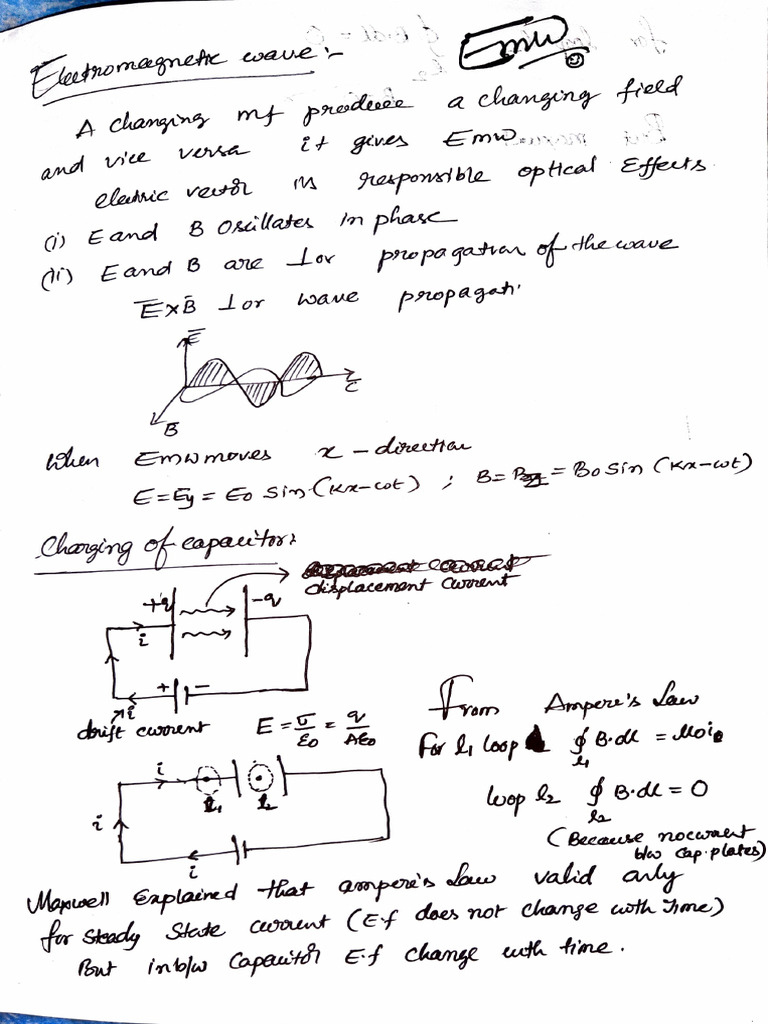 Electromagnetic wave:-
Emw
A changing mf produce a changing field
and vice versa it gives Emw
electric vector is responsible optical Effects
(i) E and B Oscillates in phase
(ii) E and B are ⊥or propagation of the wave
E̅×B̅ ⊥or wave propagati
E̅
C
B
When Emw moves x - direction
E = Ey = E0 Sin (Kx-ωt) ; B = = B0 Sin (Kx-ωt)
Charging of capacitor:
displacement current
+q -q
i
+ -
i
drift current E = σ/ε0 = q/Aε0
From Ampere's Law
For l1 loop ∮l1 B·dl = μ0i
loop l2 ∮l2 B·dl = 0
(Because no current
b/w cap. plates)
i
l1 l2
i
i
Maxwell Explained that ampere's Law valid only
for Steady State current (E.f does not change with Time)
But in b/w Capacitor E.f change with time.